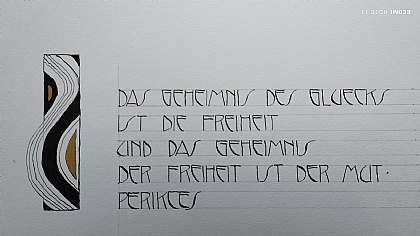 DAS GEHEIMNIS DES GLUECKS
IST DIE FREIHEIT
UND DAS GEHEIMNIS
DER FREIHEIT IST DER MUT.
PERIKLES
REDMI NOTE 11